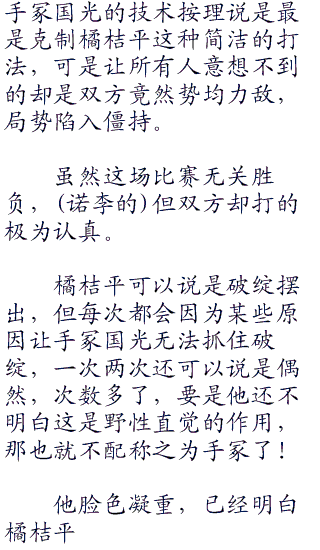 手冢国光的技术按理说是最
是克制橘桔平这种简洁的打
法，可是让所有人意想不到
的却是双方竟然势均力敌，
局势陷入僵持。
虽然这场比赛无关胜
负，(诺李的)但双方却打的
极为认真。
橘桔平可以说是破绽摆
出，但每次都会因为某些原
因让手冢国光无法抓住破
绽，一次两次还可以说是偶
然，次数多了，要是他还不
明白这是野性直觉的作用，
那也就不配称之为手冢了！
他脸色凝重，已经明白
橘桔平